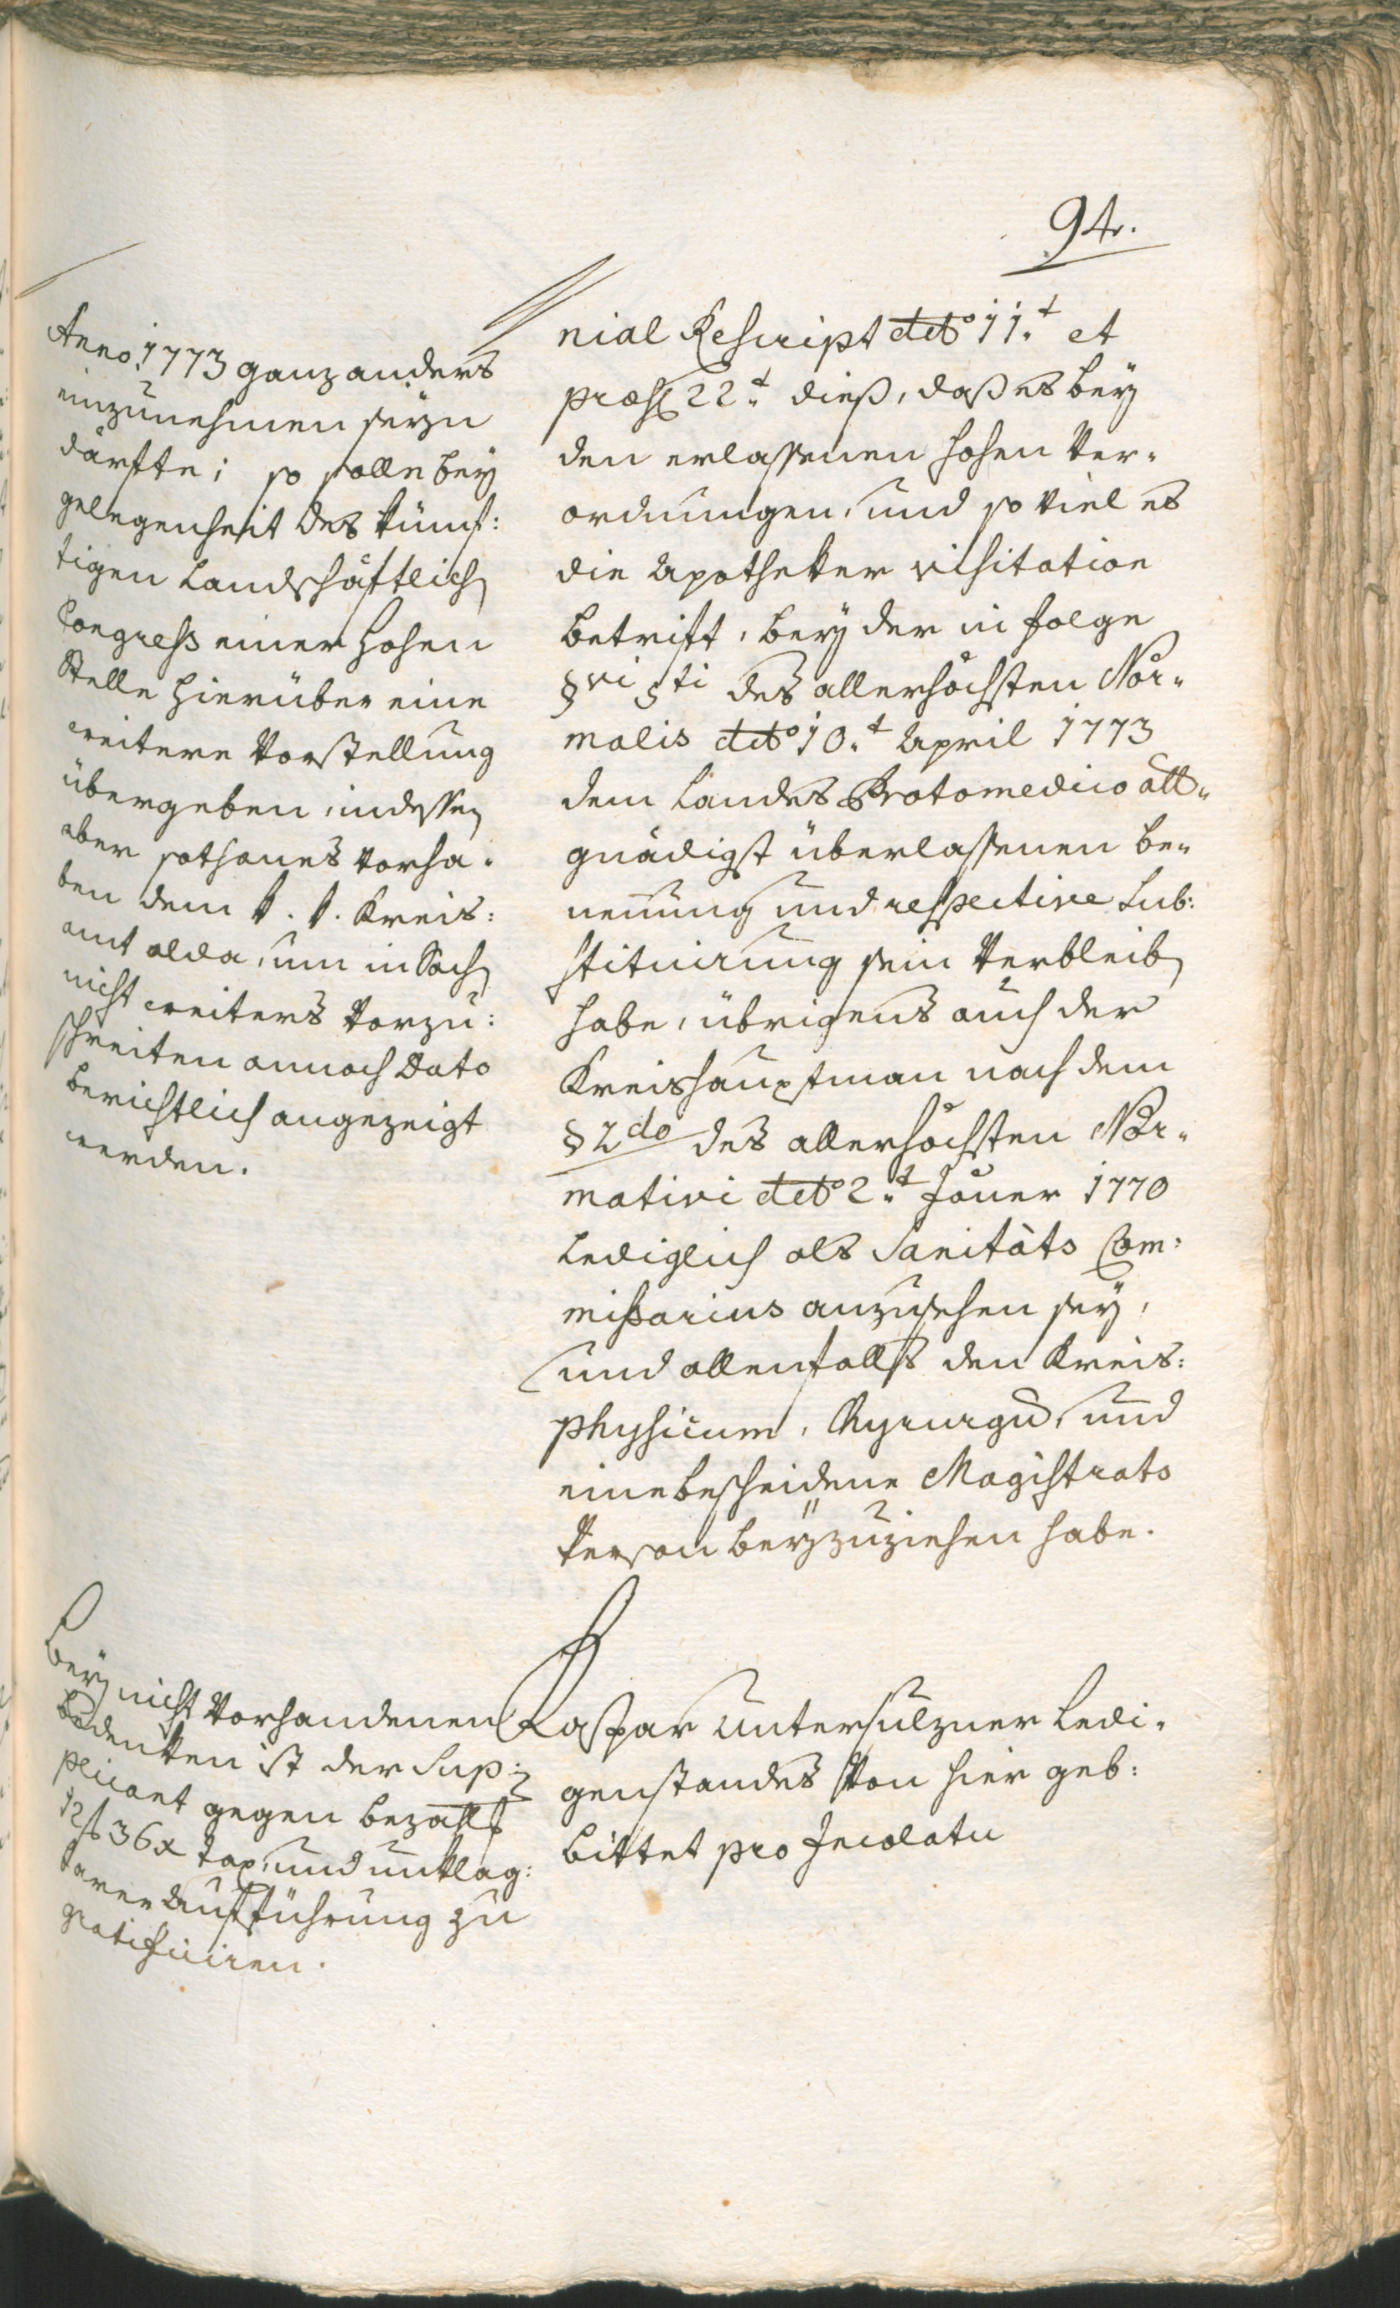 94.
Anno 1773 ganz anders
einzunehmen seyn
därfte; so solle bey
gelegenheit des künf:
tigen Landschäftlich
Congress einer hohen
Stelle hierüber eine
weitere Vorstellung
übergeben, indessen
aber sothanes Vorha-
ben dem k. k. Kreis:
amt alda, um in Sach
nicht weiters Vorzu:
schreiten annoch Dato
berichtlich angezeigt
werden.
nial Rescript ddto 11.t et
præs 22.t dieß, daß es bey
den erlassenen hohen Ver-
ordnungen, und so viel es
die Apotheker visitation
betrift, bey der in folge
§vi 5ti des allerhöchsten Nor-
malis ddto 10.t April 1773
dem Landes Protomedico all-
gnädigst überlassenen Be-
nennung und respective Sub:
stituirung sein Verbleib
habe, übrigens auch der
Kreishauptman nach dem
§ 2do des allerhöchsten Nor-
mativi ddto 2.t Jäner 1770
Lediglich als Sanitäts Com:
missarius anzusehen sey,
und allenfalls den Kreis:
physicum, Chyrurgū, und
eine bescheidene Magistrats
Person beyzuziehen habe.
Bey nicht Vorhandenen
Bedenken ist der Sup:
plicant gegen bezahl
12f 36x Tax, und unklag:
barer Aufführung zu
gratificiren.
Kaspar Untersulzner Ledi-
genstandes Von hier geb:
bittet pro Incolatu